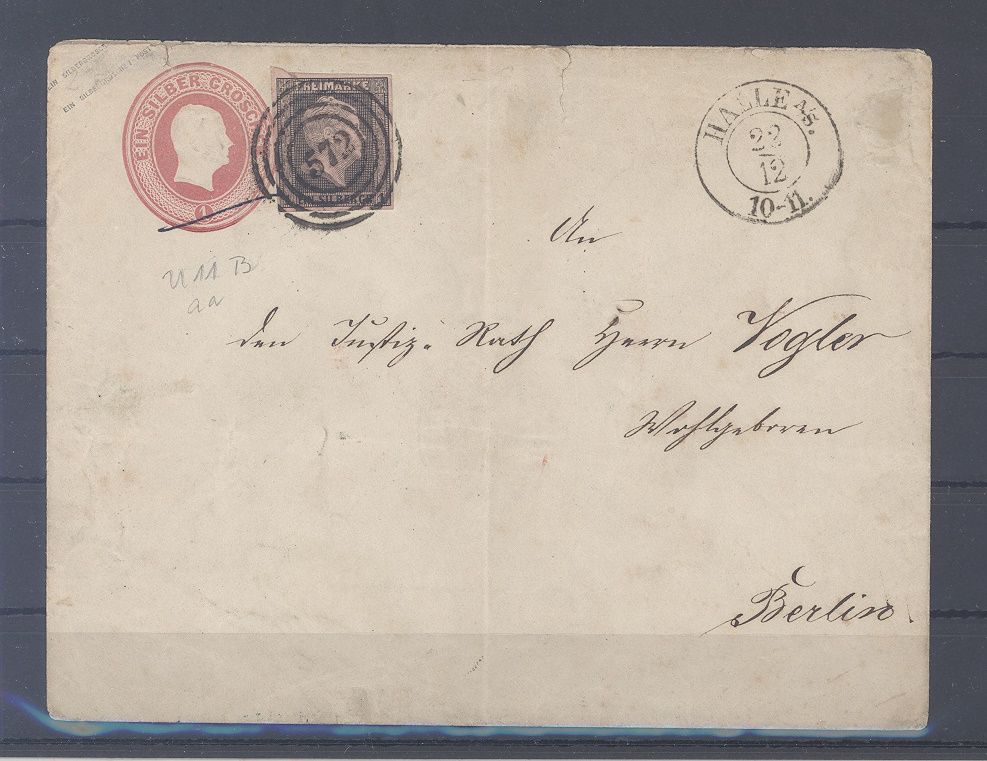 EIN SILBERGROSCHEN
EIN SILBER GROSCH
1
FREIMARKE
572
EIN SILBERGR
HALLE A/S.
22
12
10-11.
U 11 B
aa
An
den Justiz-Rath Herrn Vogler
Wohlgeboren
Berlin.